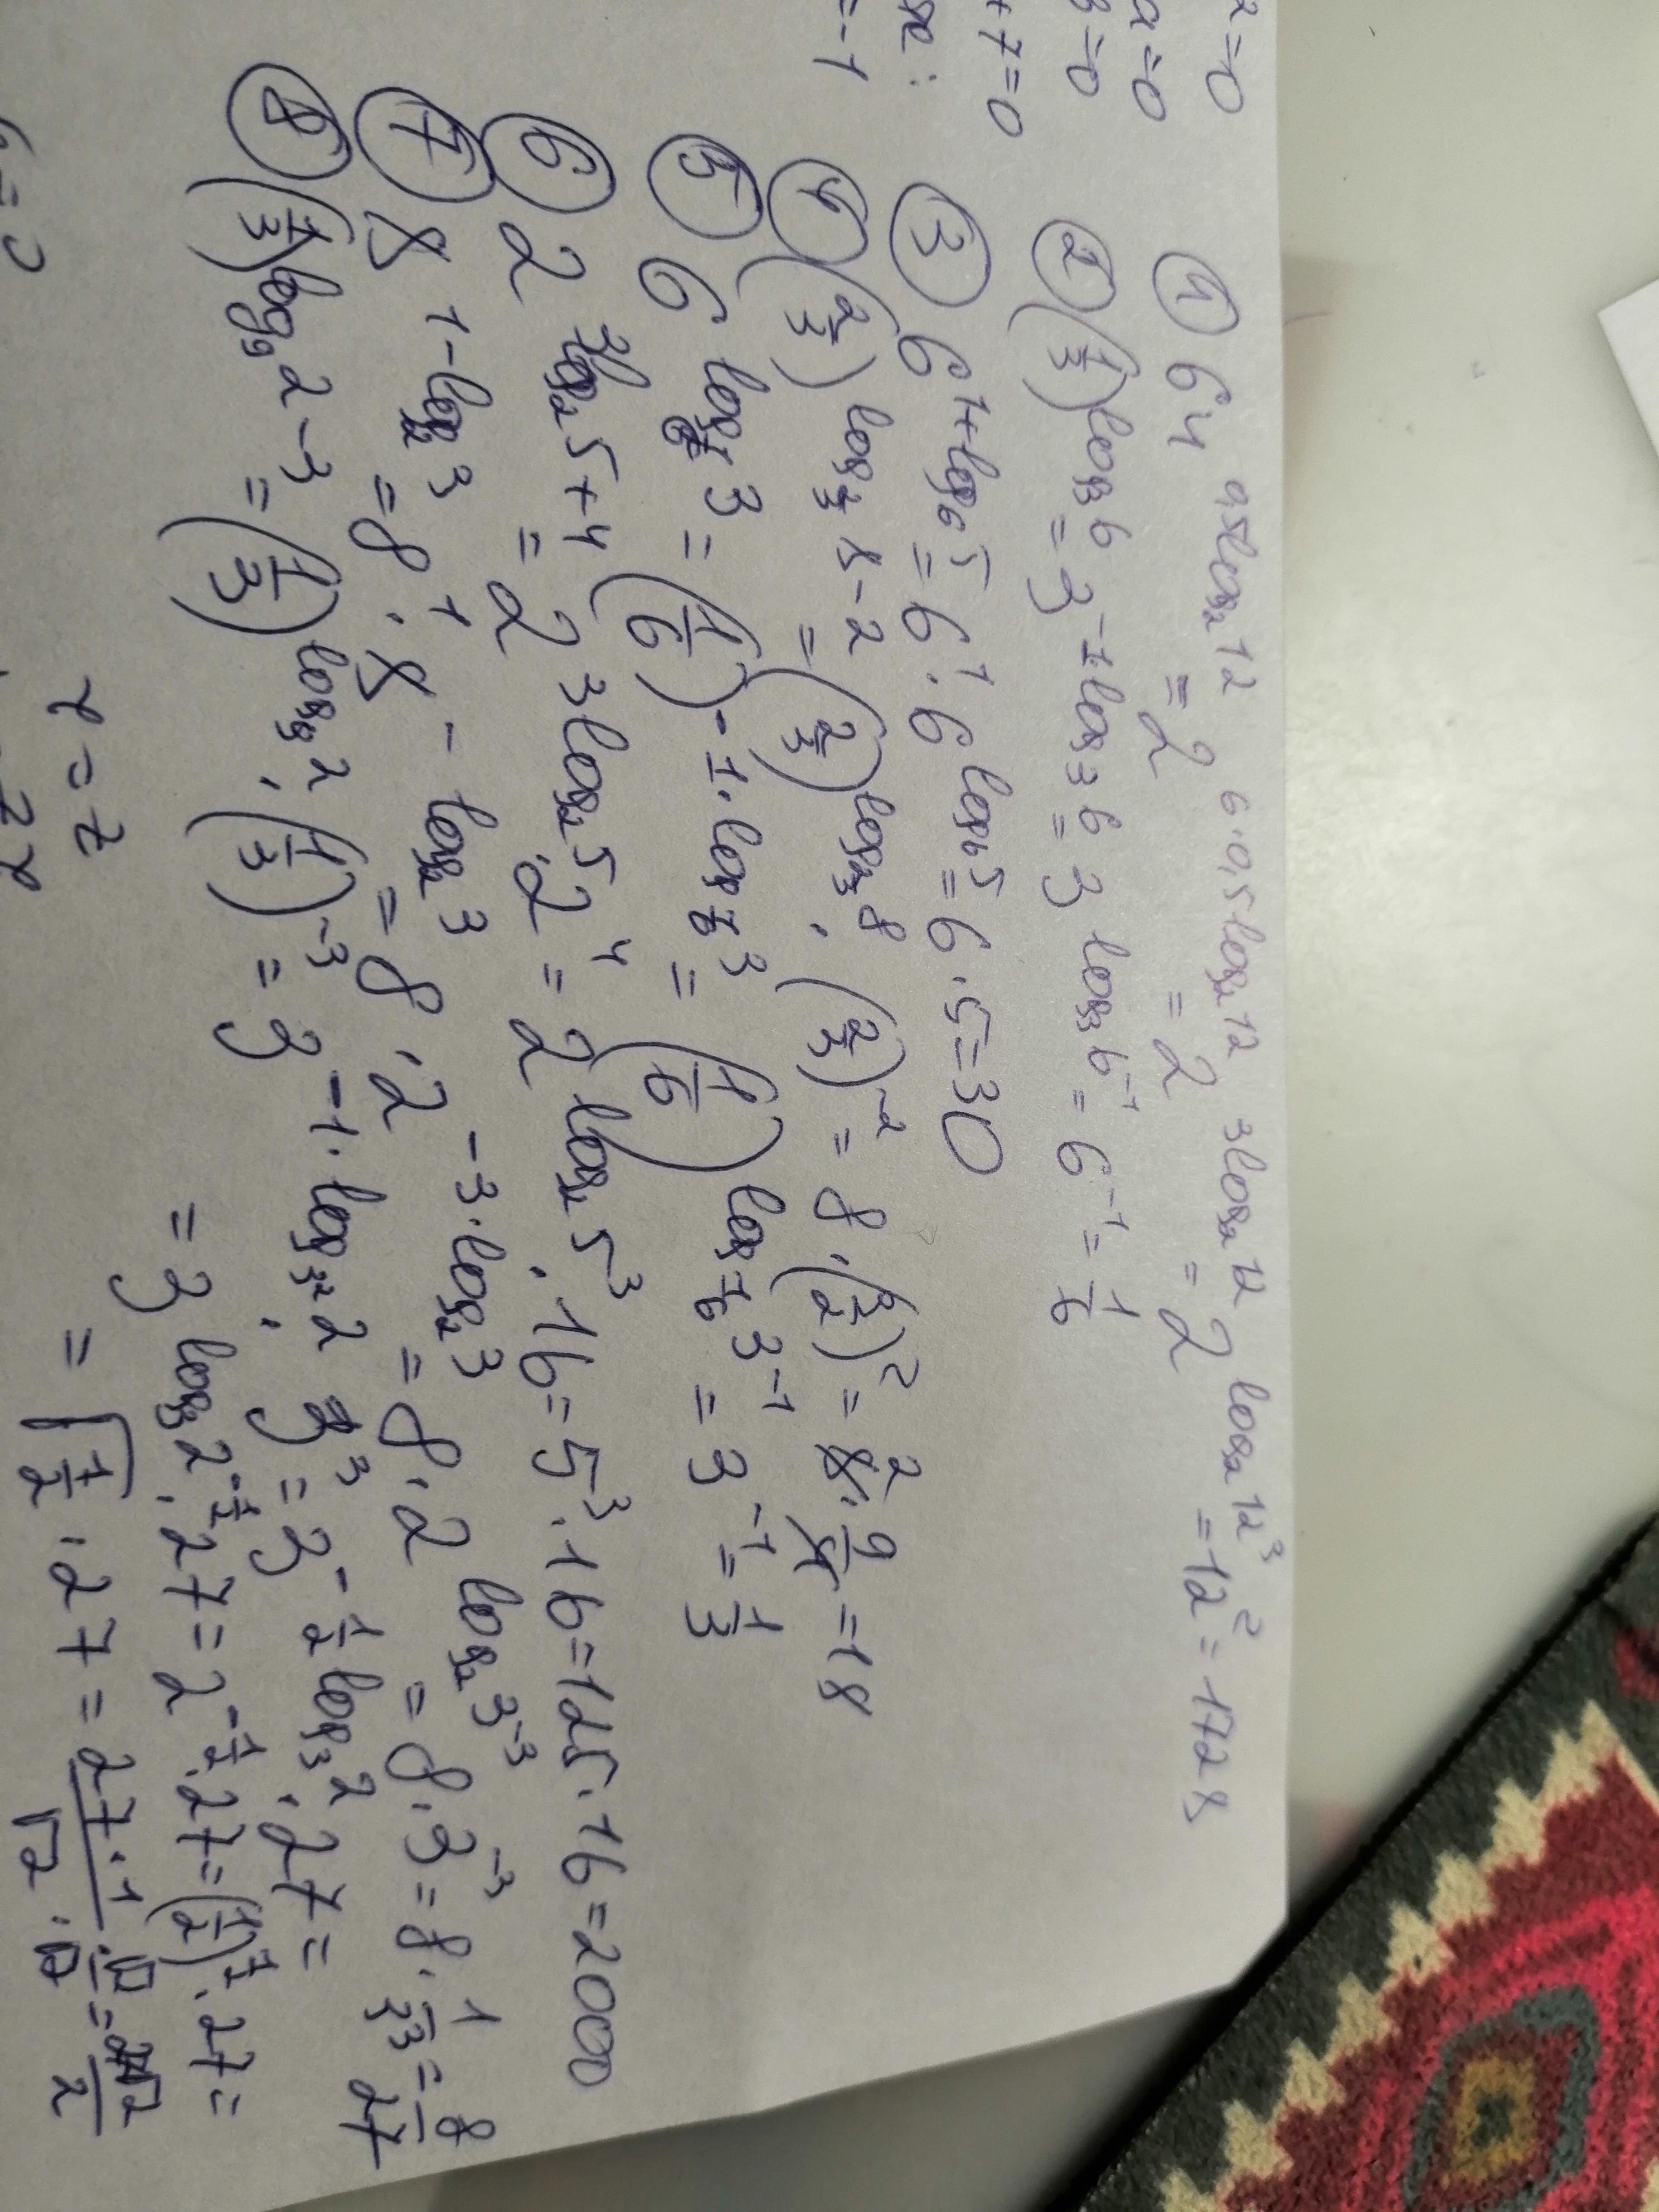 x=0
a=0
=0
+7=0
=-1
① 64^(0,5log₂12) = 2^(6·0,5log₂12) = 2^(3log₂12) = 2^(log₂12³) = 12² = 1728
② (1/3)^(log₃6) = 3^(-1·log₃6) = 3^(log₃6⁻¹) = 6⁻¹ = 1/6
③ 6^(1+log₆5) = 6¹·6^(log₆5) = 6·5=30
④ (2/3)^(log_(2/3)8-2) = (2/3)^(log_(2/3)8) · (2/3)⁻² = 8·(3/2)² = 8·9/4 = 18
⑤ 6^(log_(1/6)3) = (1/6)^(-1·log_(1/6)3) = (1/6)^(log_(1/6)3⁻¹) = 3⁻¹ = 1/3
⑥ 2^(3log₂5+4) = 2^(3log₂5)·2⁴ = 2^(log₂5³)·16 = 5³·16=125·16=2000
⑦ 8^(1-log₂3) = 8¹·8^(-log₂3) = 8·2^(-3·log₂3) = 8·2^(log₂3⁻³) = 8·3⁻³ = 8·1/3³ = 8/27
⑧ (1/3)^(log₉2-3) = (1/3)^(log₉2)·(1/3)⁻³ = 3^(-1·log_(3²)2)·3³ = 3^(-1/2log₃2)·27=
= 3^(log₃2^(-1/2))·27 = 2^(-1/2)·27=(1/2)^(1/2)·27=
= √(1/2)·27 = 27·1/√2·√2/√2 = 27√2/2